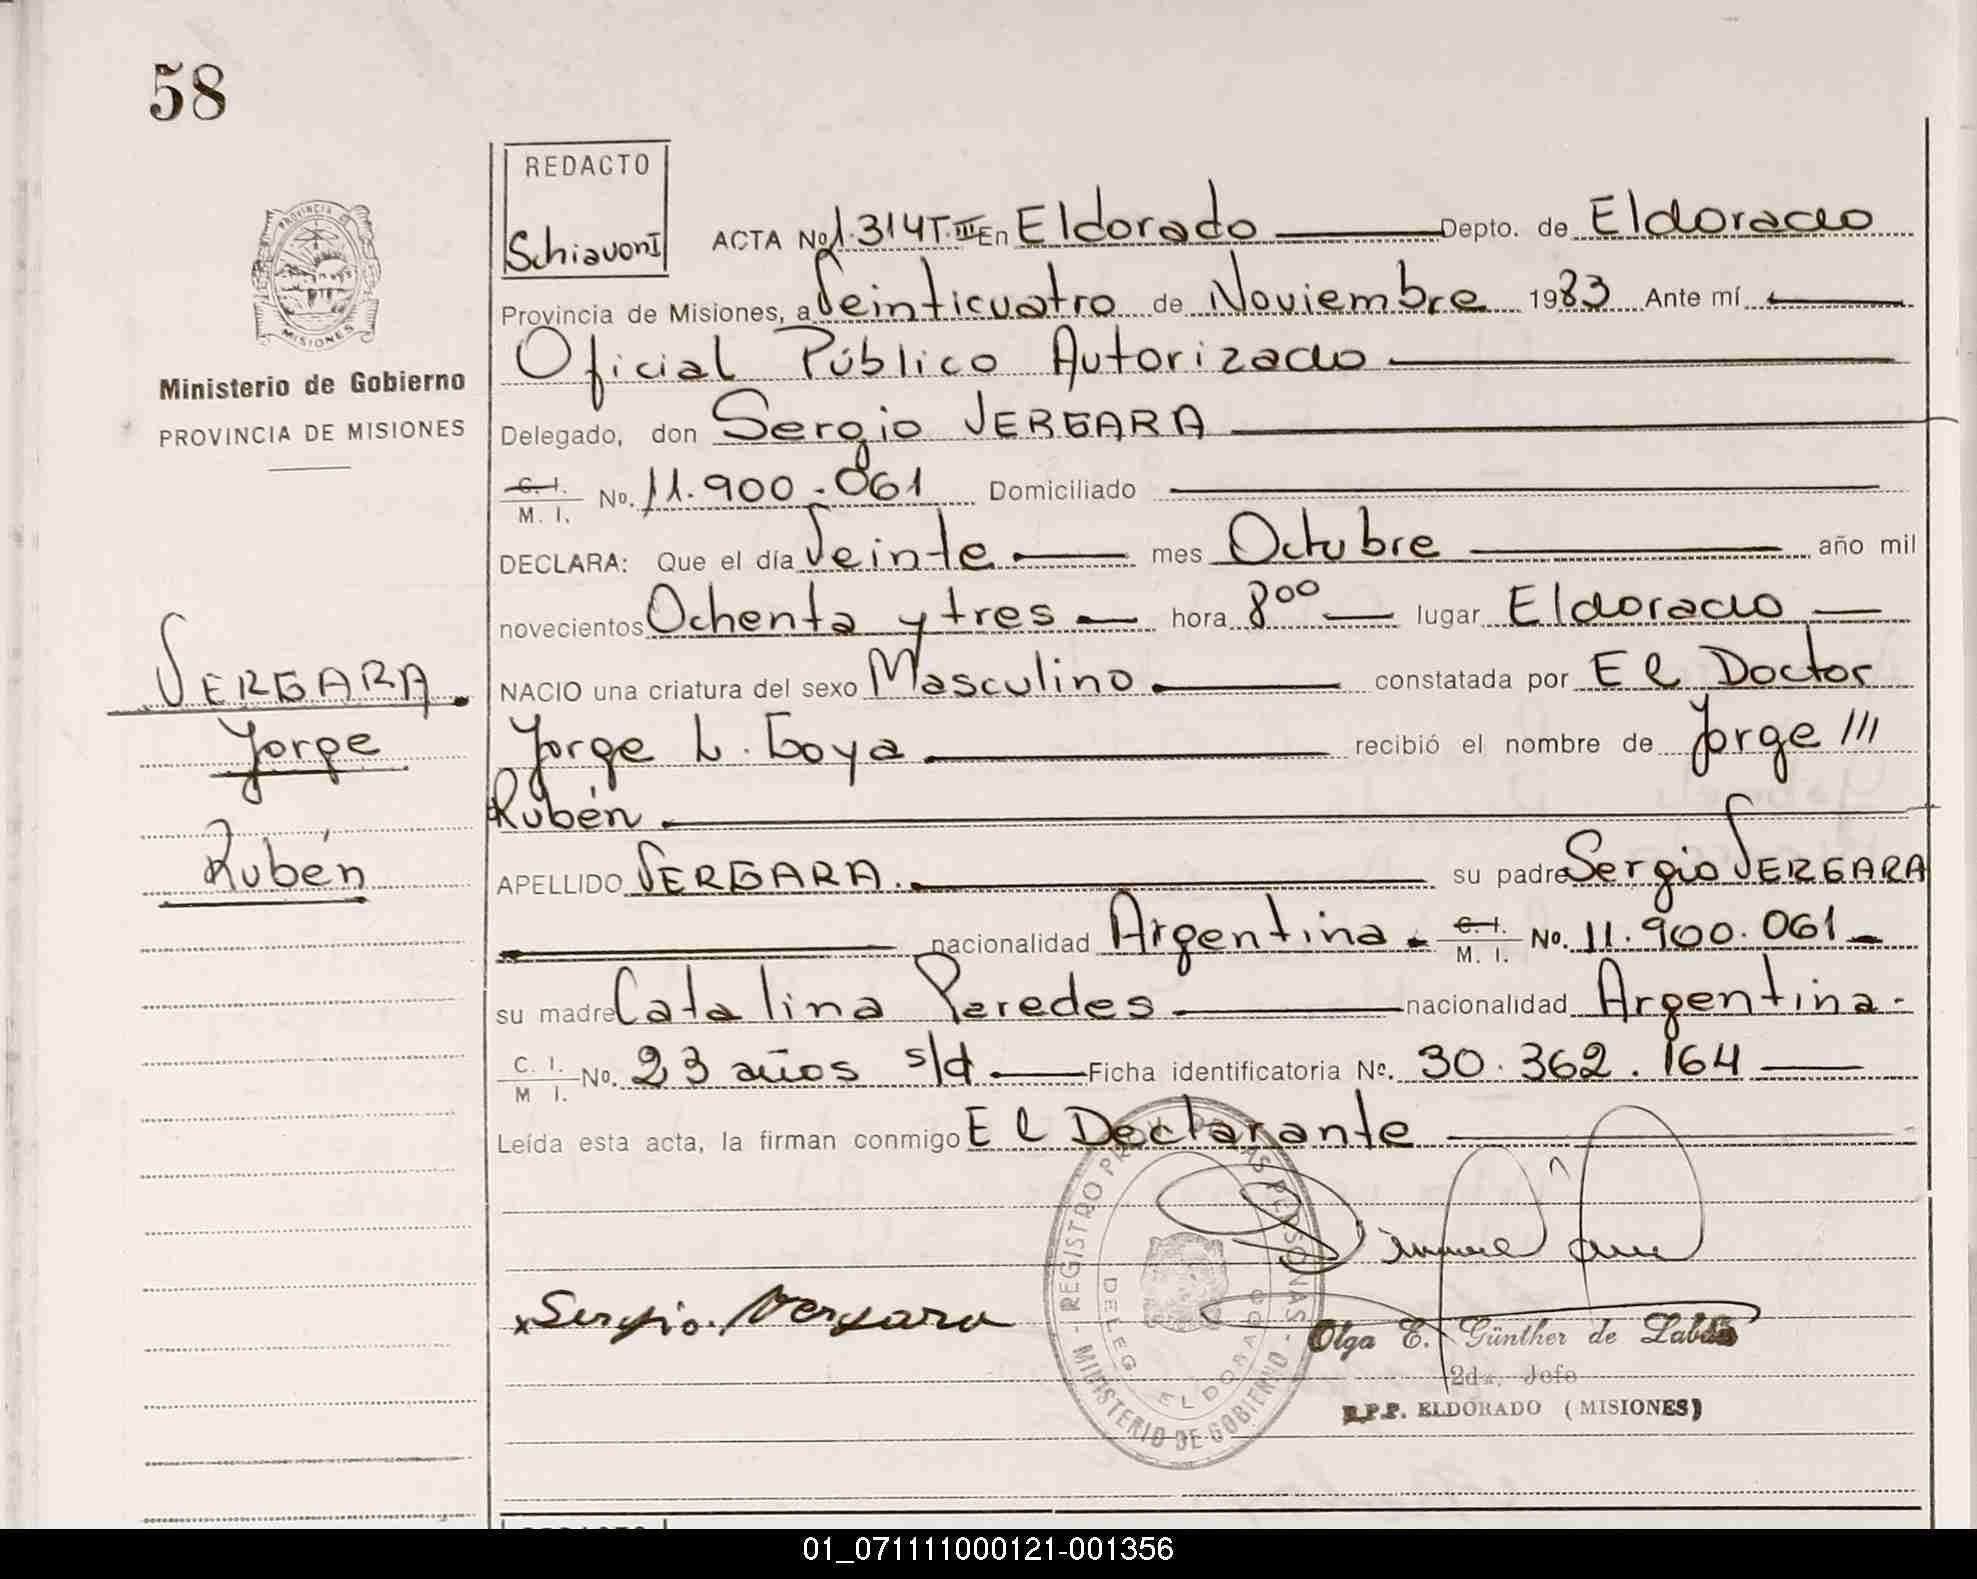 58
REDACTO
Schiavoni
ACTA No. 1.314 T.III En Eldorado Depto. de Eldorado
Provincia de Misiones, a Veinticuatro de Noviembre 1983 Ante mí
Oficial Público Autorizado
Delegado, don Sergio VERGARA
C. I.
M. I. No. 11.900.061 Domiciliado
DECLARA: Que el día Veinte mes Octubre año mil
novecientos Ochenta y tres hora 8⁰⁰ lugar Eldorado
NACIO una criatura del sexo Masculino constatada por El Doctor
Jorge L. Goya recibió el nombre de Jorge ///
Rubén
APELLIDO VERGARA. su padre Sergio VERGARA
nacionalidad Argentina. C. I.
M. I. No. 11.900.061
su madre Catalina Paredes nacionalidad Argentina.
C. I.
M I. No. 23 años s/d Ficha identificatoria No. 30.362.164
Leída esta acta, la firman conmigo El Declarante
x Sergio. Vergara
Olga E. Günther de
2da. Jefe
R.P.P. ELDORADO (MISIONES)
REGISTRO PROV. DE LAS PERSONAS
MINISTERIO DE GOBIERNO
DELEG. ELDORADO
PROVINCIA DE
MISIONES
Ministerio de Gobierno
PROVINCIA DE MISIONES
VERGARA.
Jorge
Rubén
01_071111000121-001356